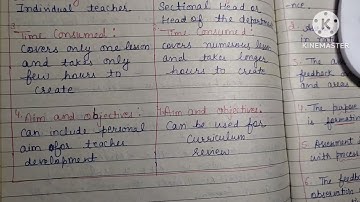 Individual teacher
3.
Time Consumed:
Covers only one lesson
and takes only
few hours to
create
4. Aim and objectives:
Can include personal
aim for teacher
development
Sectional Head or
Head of the department
Time Consumed:
covers numerous
and take longer
hours to create
4. Aim and objectives:
Can be used for
curriculum
review
nce.
3. The
feedback
and areas
4. The paper
is formatin
5. Assessment
with process
6. The feedb
observation
MADE WITH
KINEMASTER